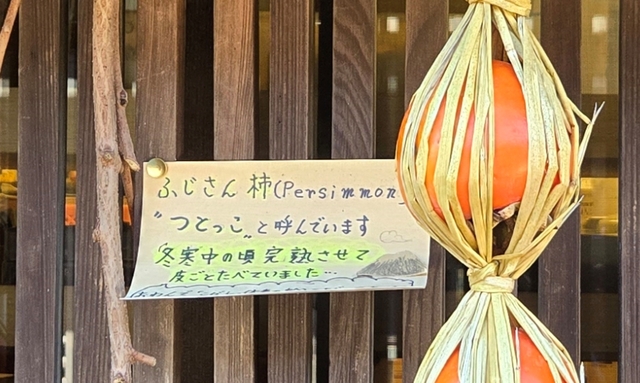 ふじさん 柿(Persimmon
"つとっこ"と呼んでいます
冬寒中の頃 完熟させて
皮ごとたべていました…